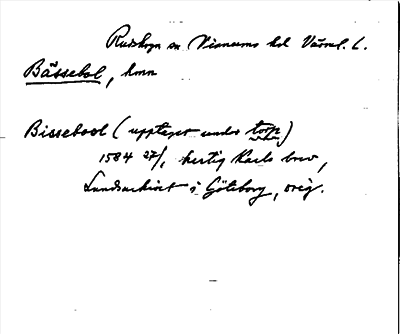 Rudskoga sn Visnums hd Värml. l.
Bässebol, hmn
Bissebool (upptaget under torp)
1584 27/1, hertig Karls brev,
Landsarkivet i Göteborg, orig.